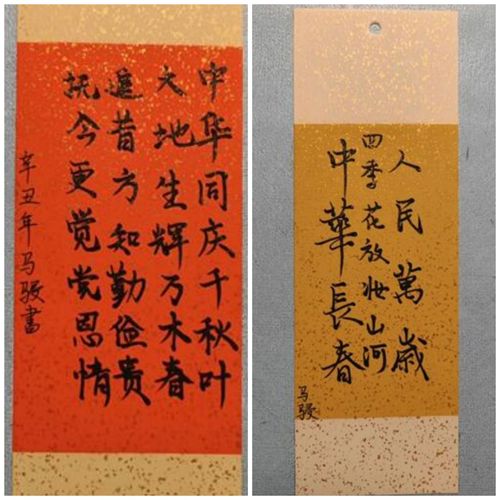 中华同庆千秋叶
大地生辉万木春
追昔方知勤俭贵
抚今更觉党恩情
辛丑年马骏书
人民萬歲
四季花放妆山河
中華長春
马骏